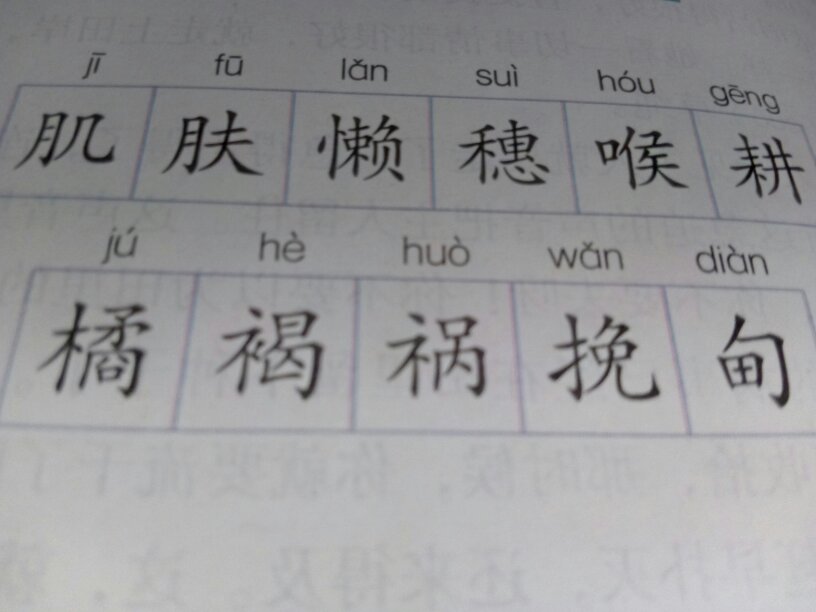 jī fū lǎn suì hóu gēng
肌 肤 懒 穗 喉 耕
jú hè huò wǎn diàn
橘 褐 祸 挽 甸